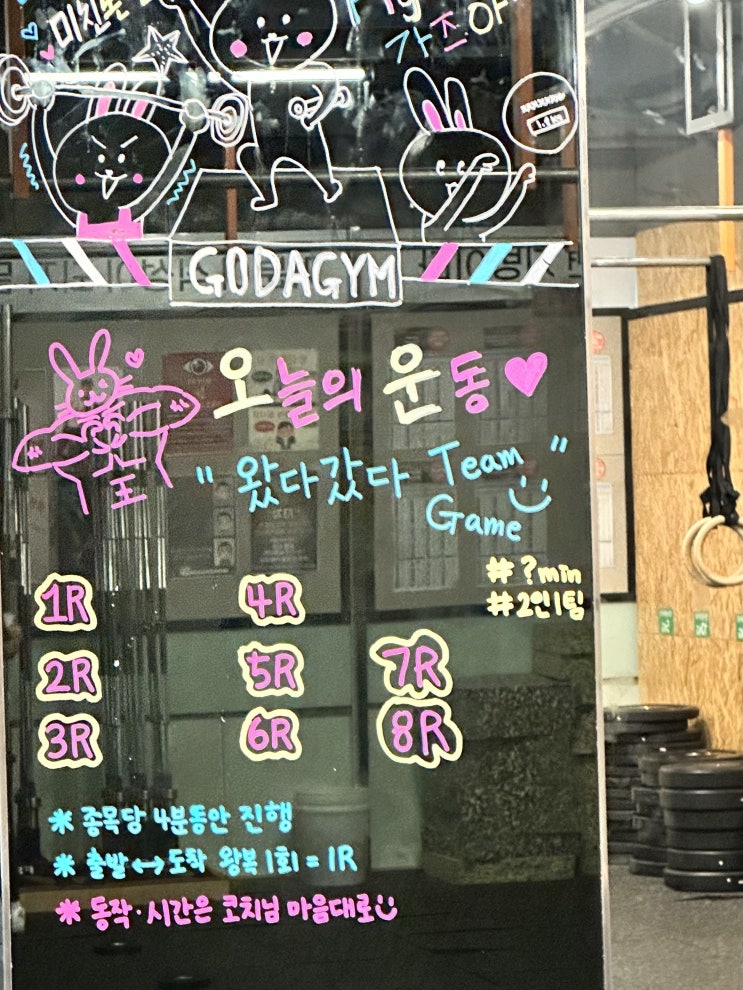 미친
가즈아
GODAGYM
오늘의 운동
" 왔다갔다 Team Game "
# ?min
# 2인 1팀
1R 4R
2R 5R 7R
3R 6R 8R
* 종목당 4분동안 진행
* 출발 ↔ 도착 왕복 1회 = 1R
* 동작·시간은 코치님 마음대로